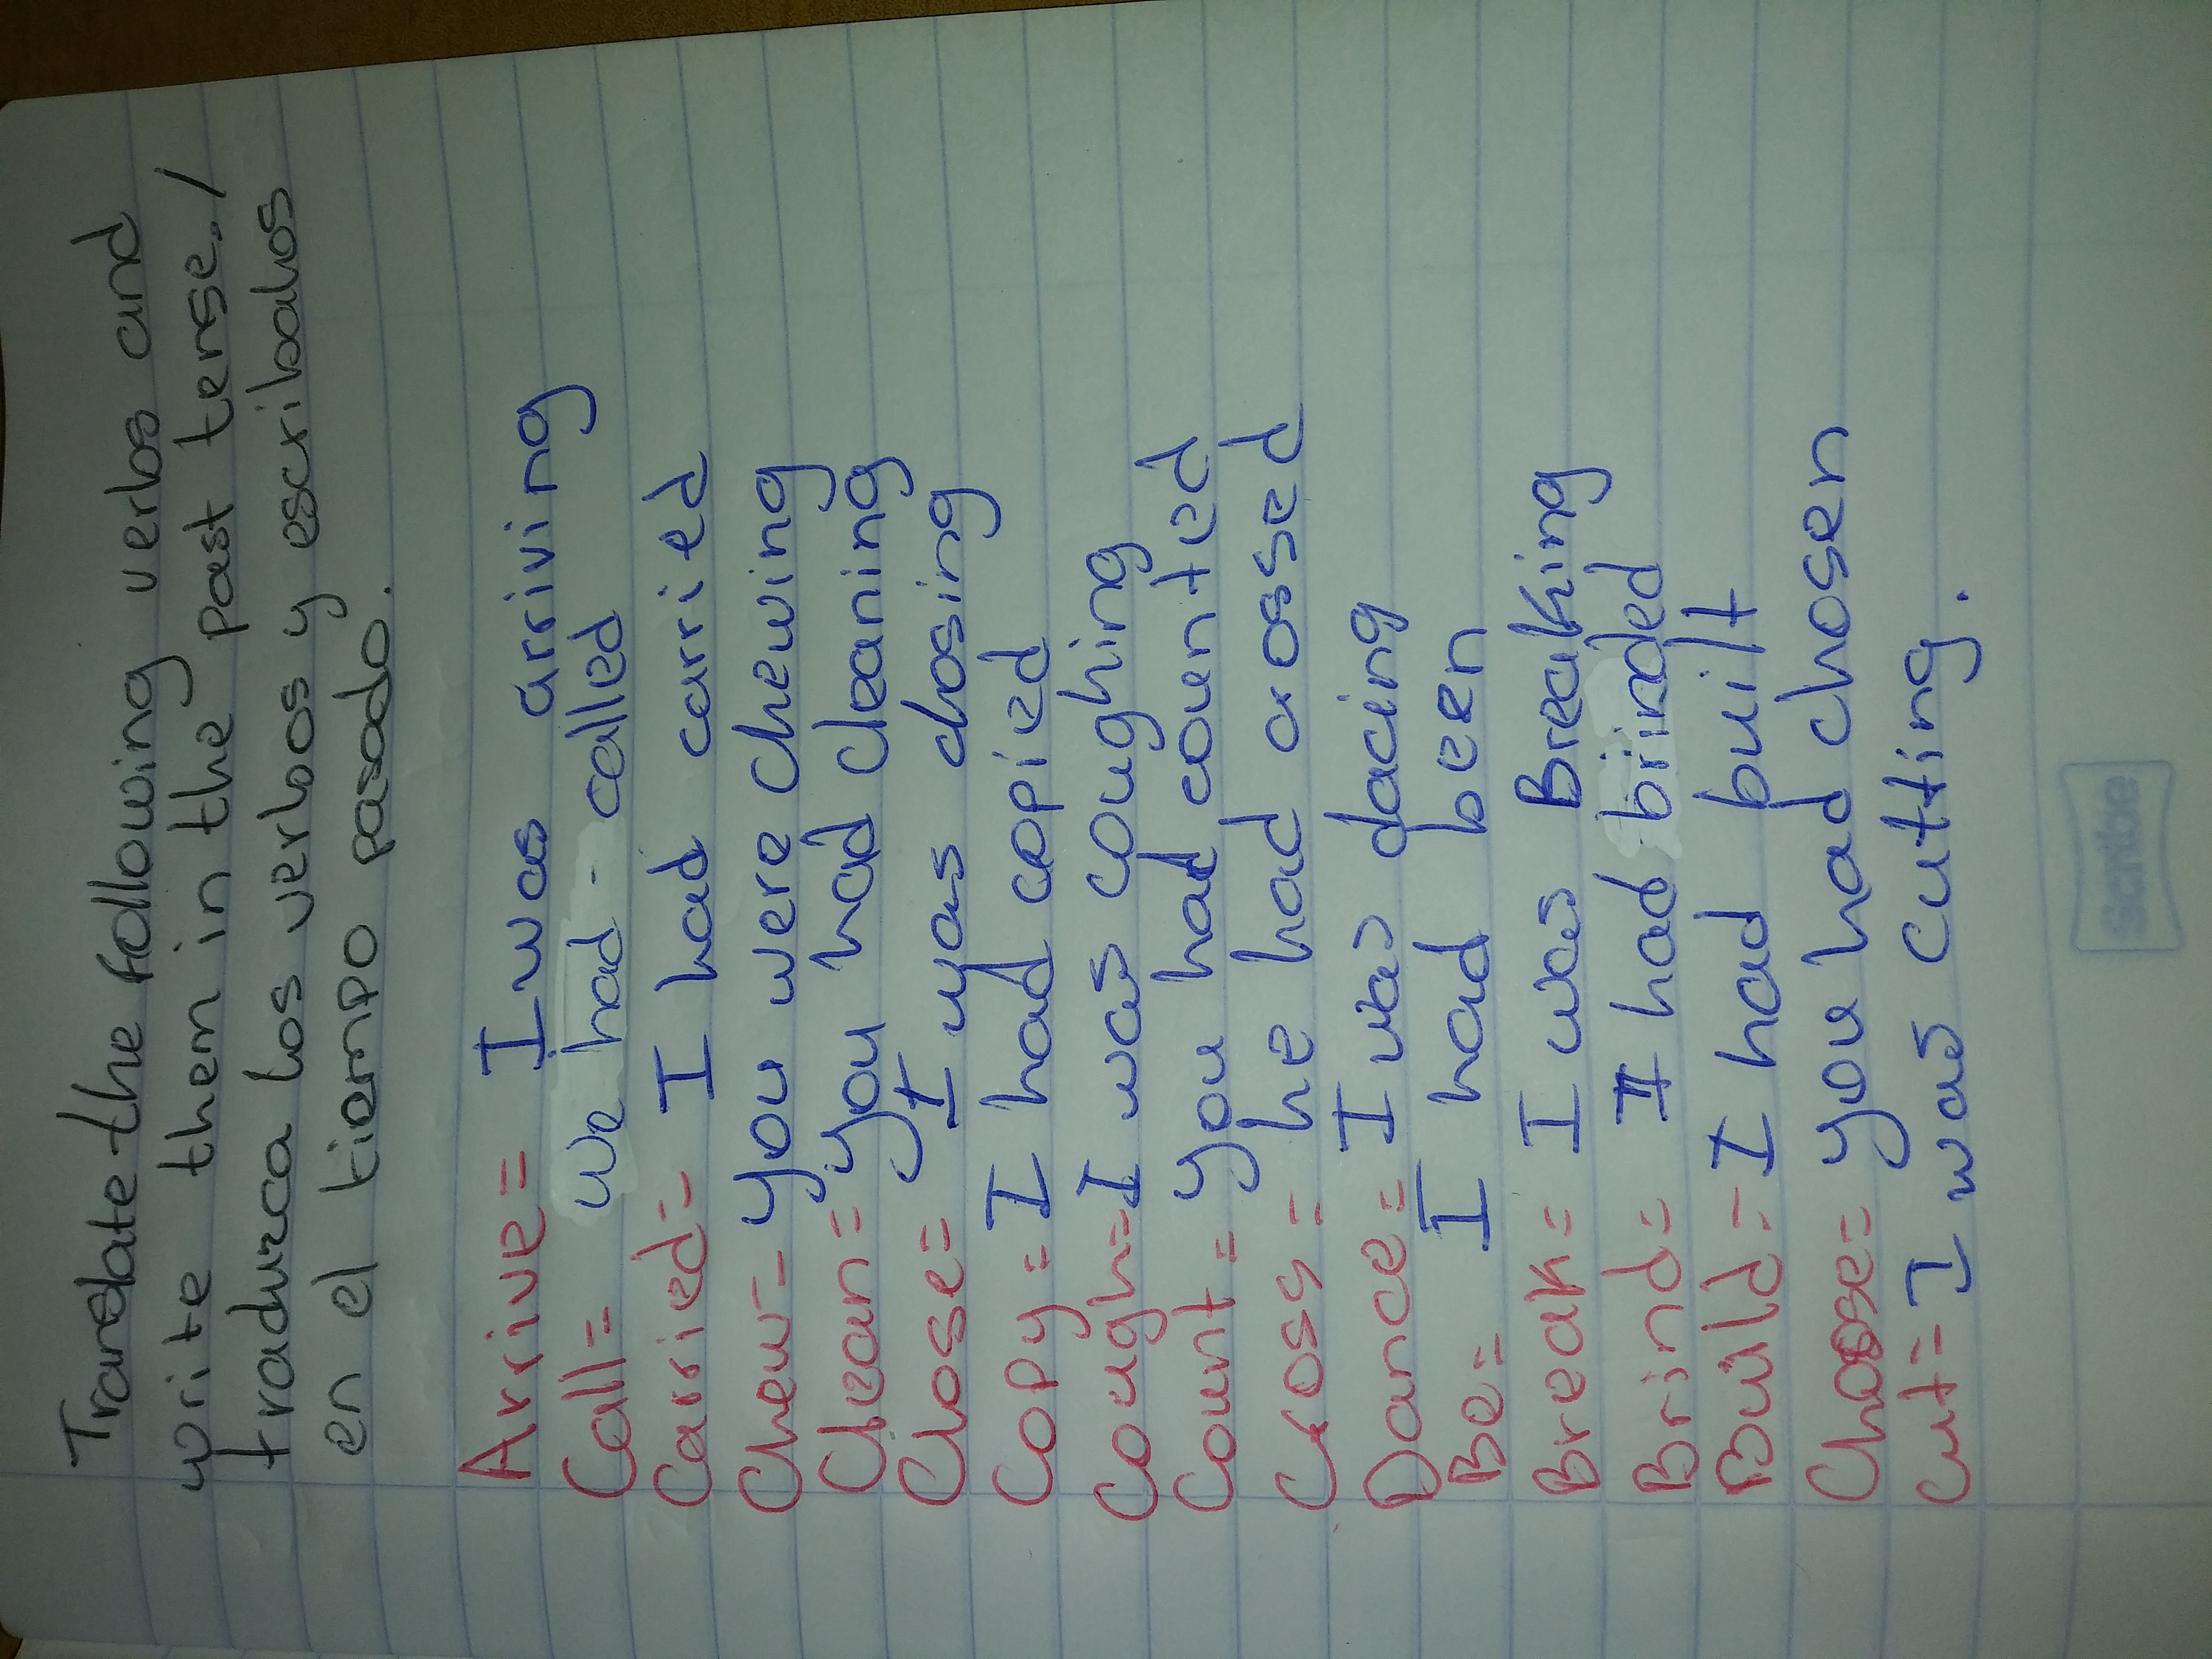 Translate the following verbs and
write them in the past tense. /
traduzca los verbos y escribalos
en el tiempo pasado.
Arrive = I was arriving
Call = we had called
Carried = I had carried
Chew = you were chewing
Clean = you had cleaning
Close = I was closing
Copy = I had copied
Cough = I was coughing
Count = you had countied
Cross = he had crossed
Dance = I was dacing
Be = I had been
Break = I was Breaking
Brind = I had brinded
Build = I had built
Choose = you had chosen
Cut = I was cutting.
scribe